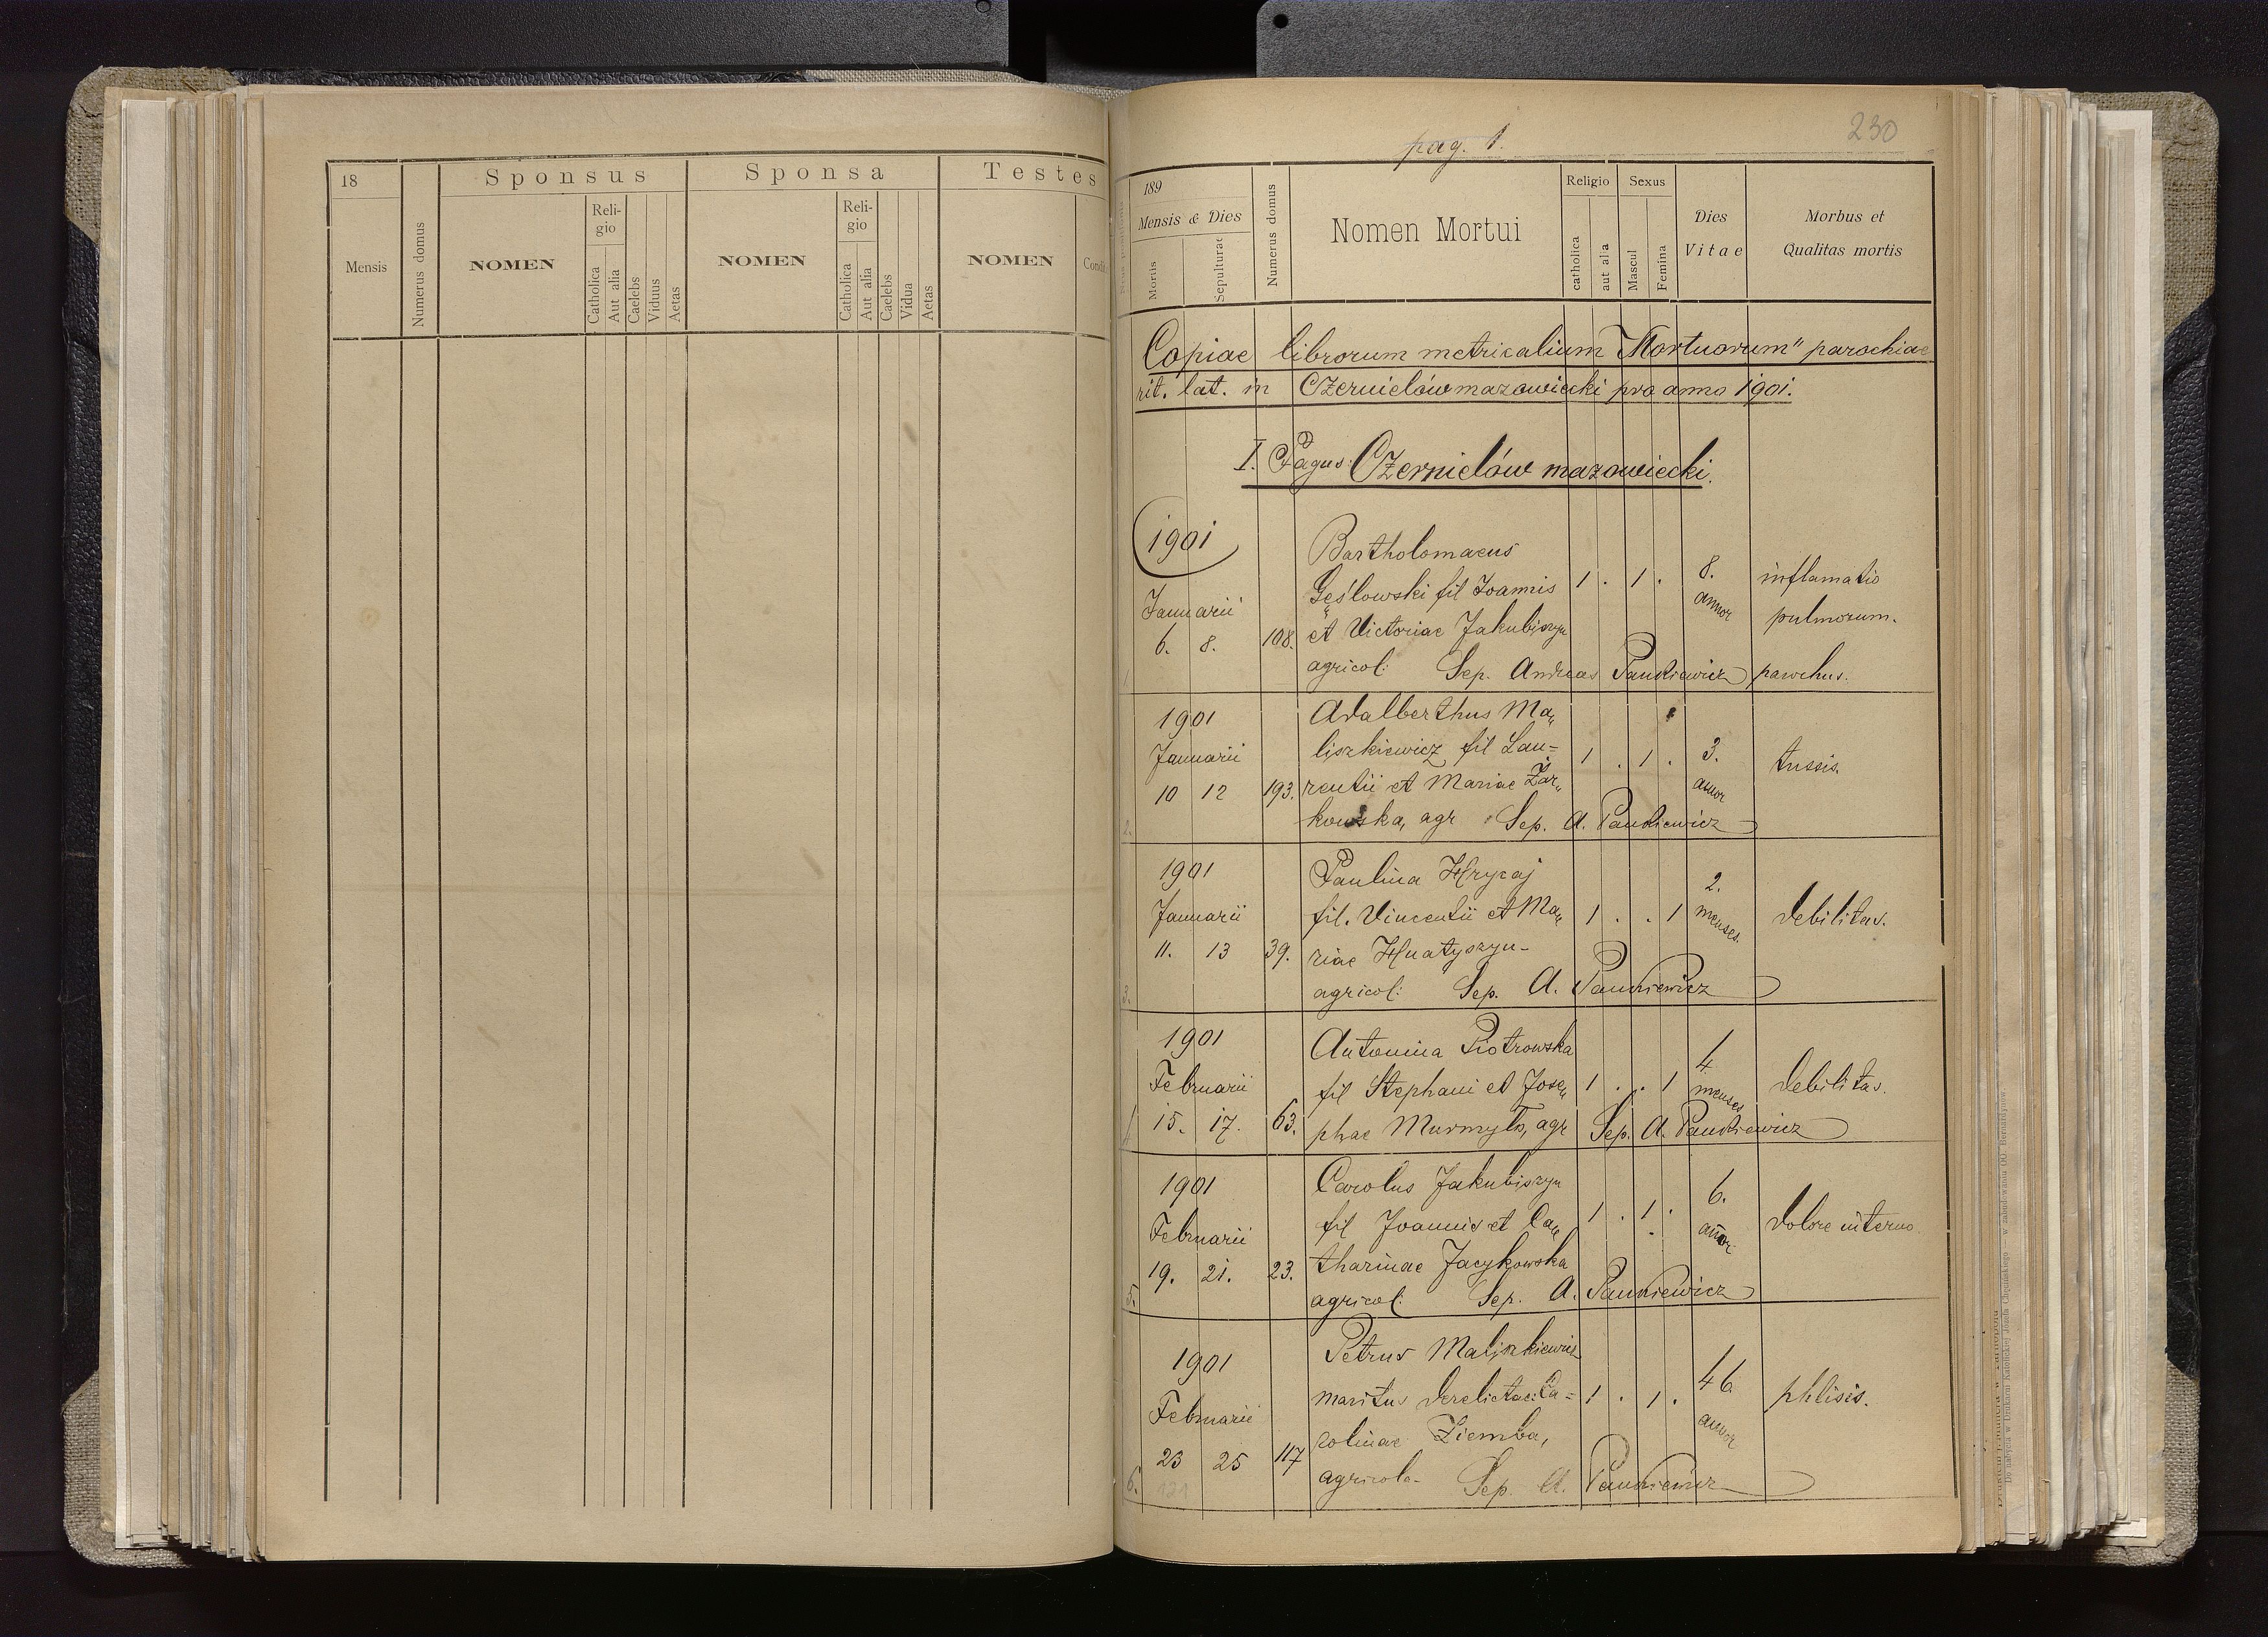 18
Mensis
Numerus domus
Sponsus
NOMEN
Reli-
gio
Catholica
Aut alia
Caelebs
Viduus
Aetas
Sponsa
NOMEN
Reli-
gio
Catholica
Aut alia
Caelebs
Vidua
Aetas
Testes
NOMEN
Condi
pag. 1.
230
189
Mensis & Dies
Mortis
Sepulturae
Numerus domus
Nomen Mortui
Religio
catholica
aut alia
Sexus
Mascul
Femina
Dies
Vitae
Morbus et
Qualitas mortis
Copiae librorum metricalium "Mortuorum" parochiae
rit. lat. in Czernielów mazowiecki pro anno 1901.
I. Pagus: Czernielów mazowiecki.
1901
Januarii
6. 8. 108.
Bartholomaeus
Gęślowski fil Joannis
et Victoriae Jakubiszyn
agricol: Sep. Andreas Pankiewicz parochus.
1 . 1 . 8.
annor
inflamatio
pulmorum.
1901
Januarii
10 12 193.
Adalberthus Ma„
liszkiewicz fil Lau=
rentii et Mariae Żar„
kowska, agr Sep. A. Pankiewicz
1 . 1 . 3.
annor
tussis.
2.
1901
Januarii
11. 13 39.
Paulina Hrycaj
fil. Vincentii et Ma„
riae Hnatyszyn-
agricol: Sep. A. Pankiewicz
1 . . 1 2.
menses.
debilitas.
3.
1901
Februarii
15. 17. 63.
Antonina Piotrowska
fil Stephani et Jose„
phae Murmyło, agr Sep. A. Pankiewicz
1 . . 1 4
menses
debilitas.
4
1901
Februarii
19. 21. 23.
Carolus Jakubiszyn
fil Joannis et Ca„
tharinae Jacykowska
agricol: Sep. A. Pankiewicz
1 . 1 . 6.
annor
dolore interno
5.
1901
Februarii
23 25 117
Petrus Maliszkiewicz
maritus derelictae: Ca=
rolinae Ziemba,
agricola- Sep. A. Pankiewicz
1 . 1 . 46
annor
phtisis.
6.
121